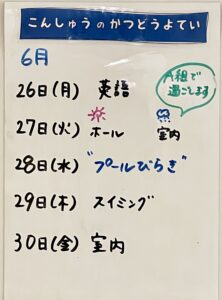 こんしゅうのかつどうよてい
6月
26日(月) 英語
A組で
過ごします
27日(火) ホール 室内
28日(水) "プールびらき"
29日(木) スイミング
30日(金) 室内